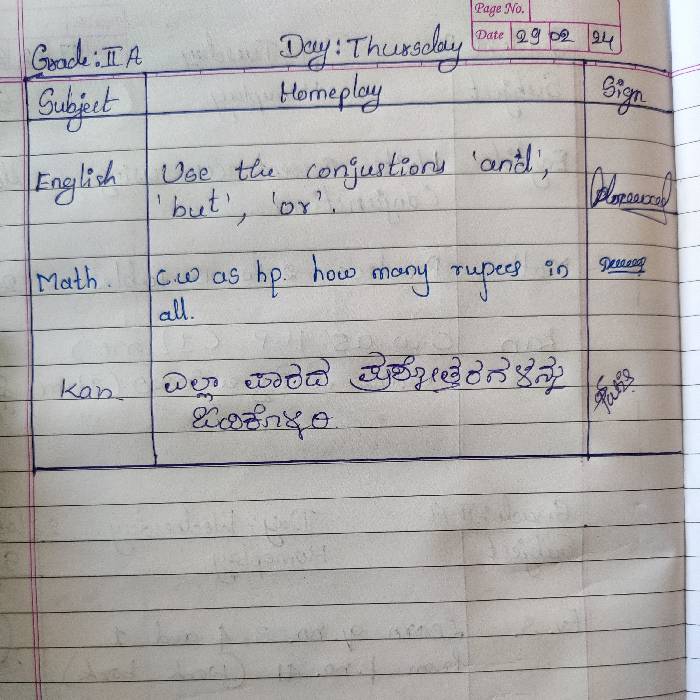 Page No.
Date 29 02 24
Grade: II A Day: Thursday
Subject Homeplay Sign
English Use the conjustions 'and',
'but', 'or'.
Math. c.w as hp. how many rupees in
all.
Kan ಎಲ್ಲಾ ಪಾಠದ ಪ್ರಶ್ನೋತ್ತರಗಳನ್ನು